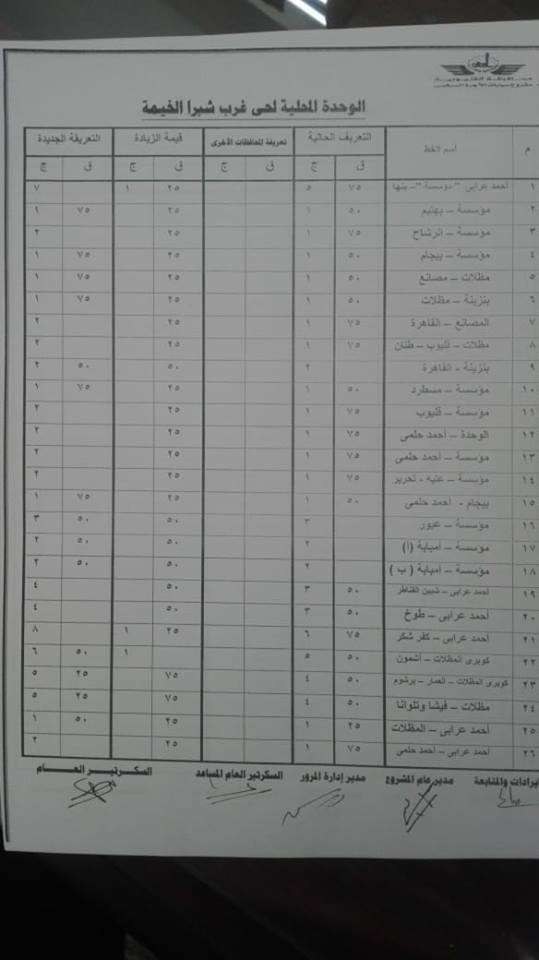 الوحدة المحلية لحى غرب شبرا الخيمة
م أسم الخط التعريف الحالية تعريفة المحافظات الأخرى قيمة الزيادة التعريفة الجديدة
ق ج ق ج ق ج ق ج
١ احمد عرابى " مؤسسة " – بنها ٧٥ ٥ ٢٥ ١ ٧
٢ مؤسسة – بهتيم ٥٠ ١ ٢٥ ٧٥ ١
٣ مؤسسة – الرشاح ٧٥ ١ ٢٥ ٢
٤ مؤسسة – بيجام ٥٠ ١ ٢٥ ٧٥ ١
٥ مظلات – مصانع ٥٠ ١ ٢٥ ٧٥ ١
٦ بنزينة – مظلات ٥٠ ١ ٢٥ ٧٥ ١
٧ المصانع – القاهرة ٧٥ ١ ٢٥ ٢
٨ مظلات – قليوب – طنان ٧٥ ١ ٢٥ ٢
٩ بنزينة - القاهرة ٢ ٥٠ ٥٠ ٢
١٠ مؤسسة – مسطرد ٥٠ ١ ٢٥ ٧٥ ١
١١ مؤسسة – قليوب ٧٥ ١ ٢٥ ٢
١٢ الوحدة – أحمد حلمى ٧٥ ١ ٢٥ ٢
١٣ مؤسسة – أحمد حلمى ٧٥ ١ ٢٥ ٢
١٤ مؤسسة – عتبه - تحرير ٧٥ ١ ٢٥ ٢
١٥ بيجام - أحمد حلمى ٥٠ ١ ٢٥ ٧٥ ١
١٦ مؤسسة – عبور ٣ ٥٠ ٥٠ ٣
١٧ مؤسسة – أمبابة (أ) ٢ ٥٠ ٥٠ ٢
١٨ مؤسسة – أمبابة ( ب ) ٢ ٥٠ ٥٠ ٢
١٩ احمد عرابى – شبين القناطر ٥٠ ٣ ٥٠ ٤
٢٠ أحمد عرابى – طوخ ٥٠ ٣ ٥٠ ٤
٢١ أحمد عرابى – كفر شكر ٧٥ ٦ ٢٥ ١ ٨
٢٢ كوبرى المظلات – أشمون ٥٠ ٥ ١ ٥٠ ٦
٢٣ كوبرى المظلات – العمار – برشوم ٥٠ ٤ ٧٥ ٢٥ ٥
٢٤ مظلات – فيشا وتلوانا ٥٠ ٤ ٧٥ ٢٥ ٥
٢٥ أحمد عرابى – المظلات ٢٥ ١ ٢٥ ٥٠ ١
٢٦ أحمد عرابى – أحمد حلمى ٧٥ ١ ٢٥ ٢
يرادات والمتابعة مدير عام المشروع مدير إدارة المرور السكرتير العام المساعد السكرتير العام